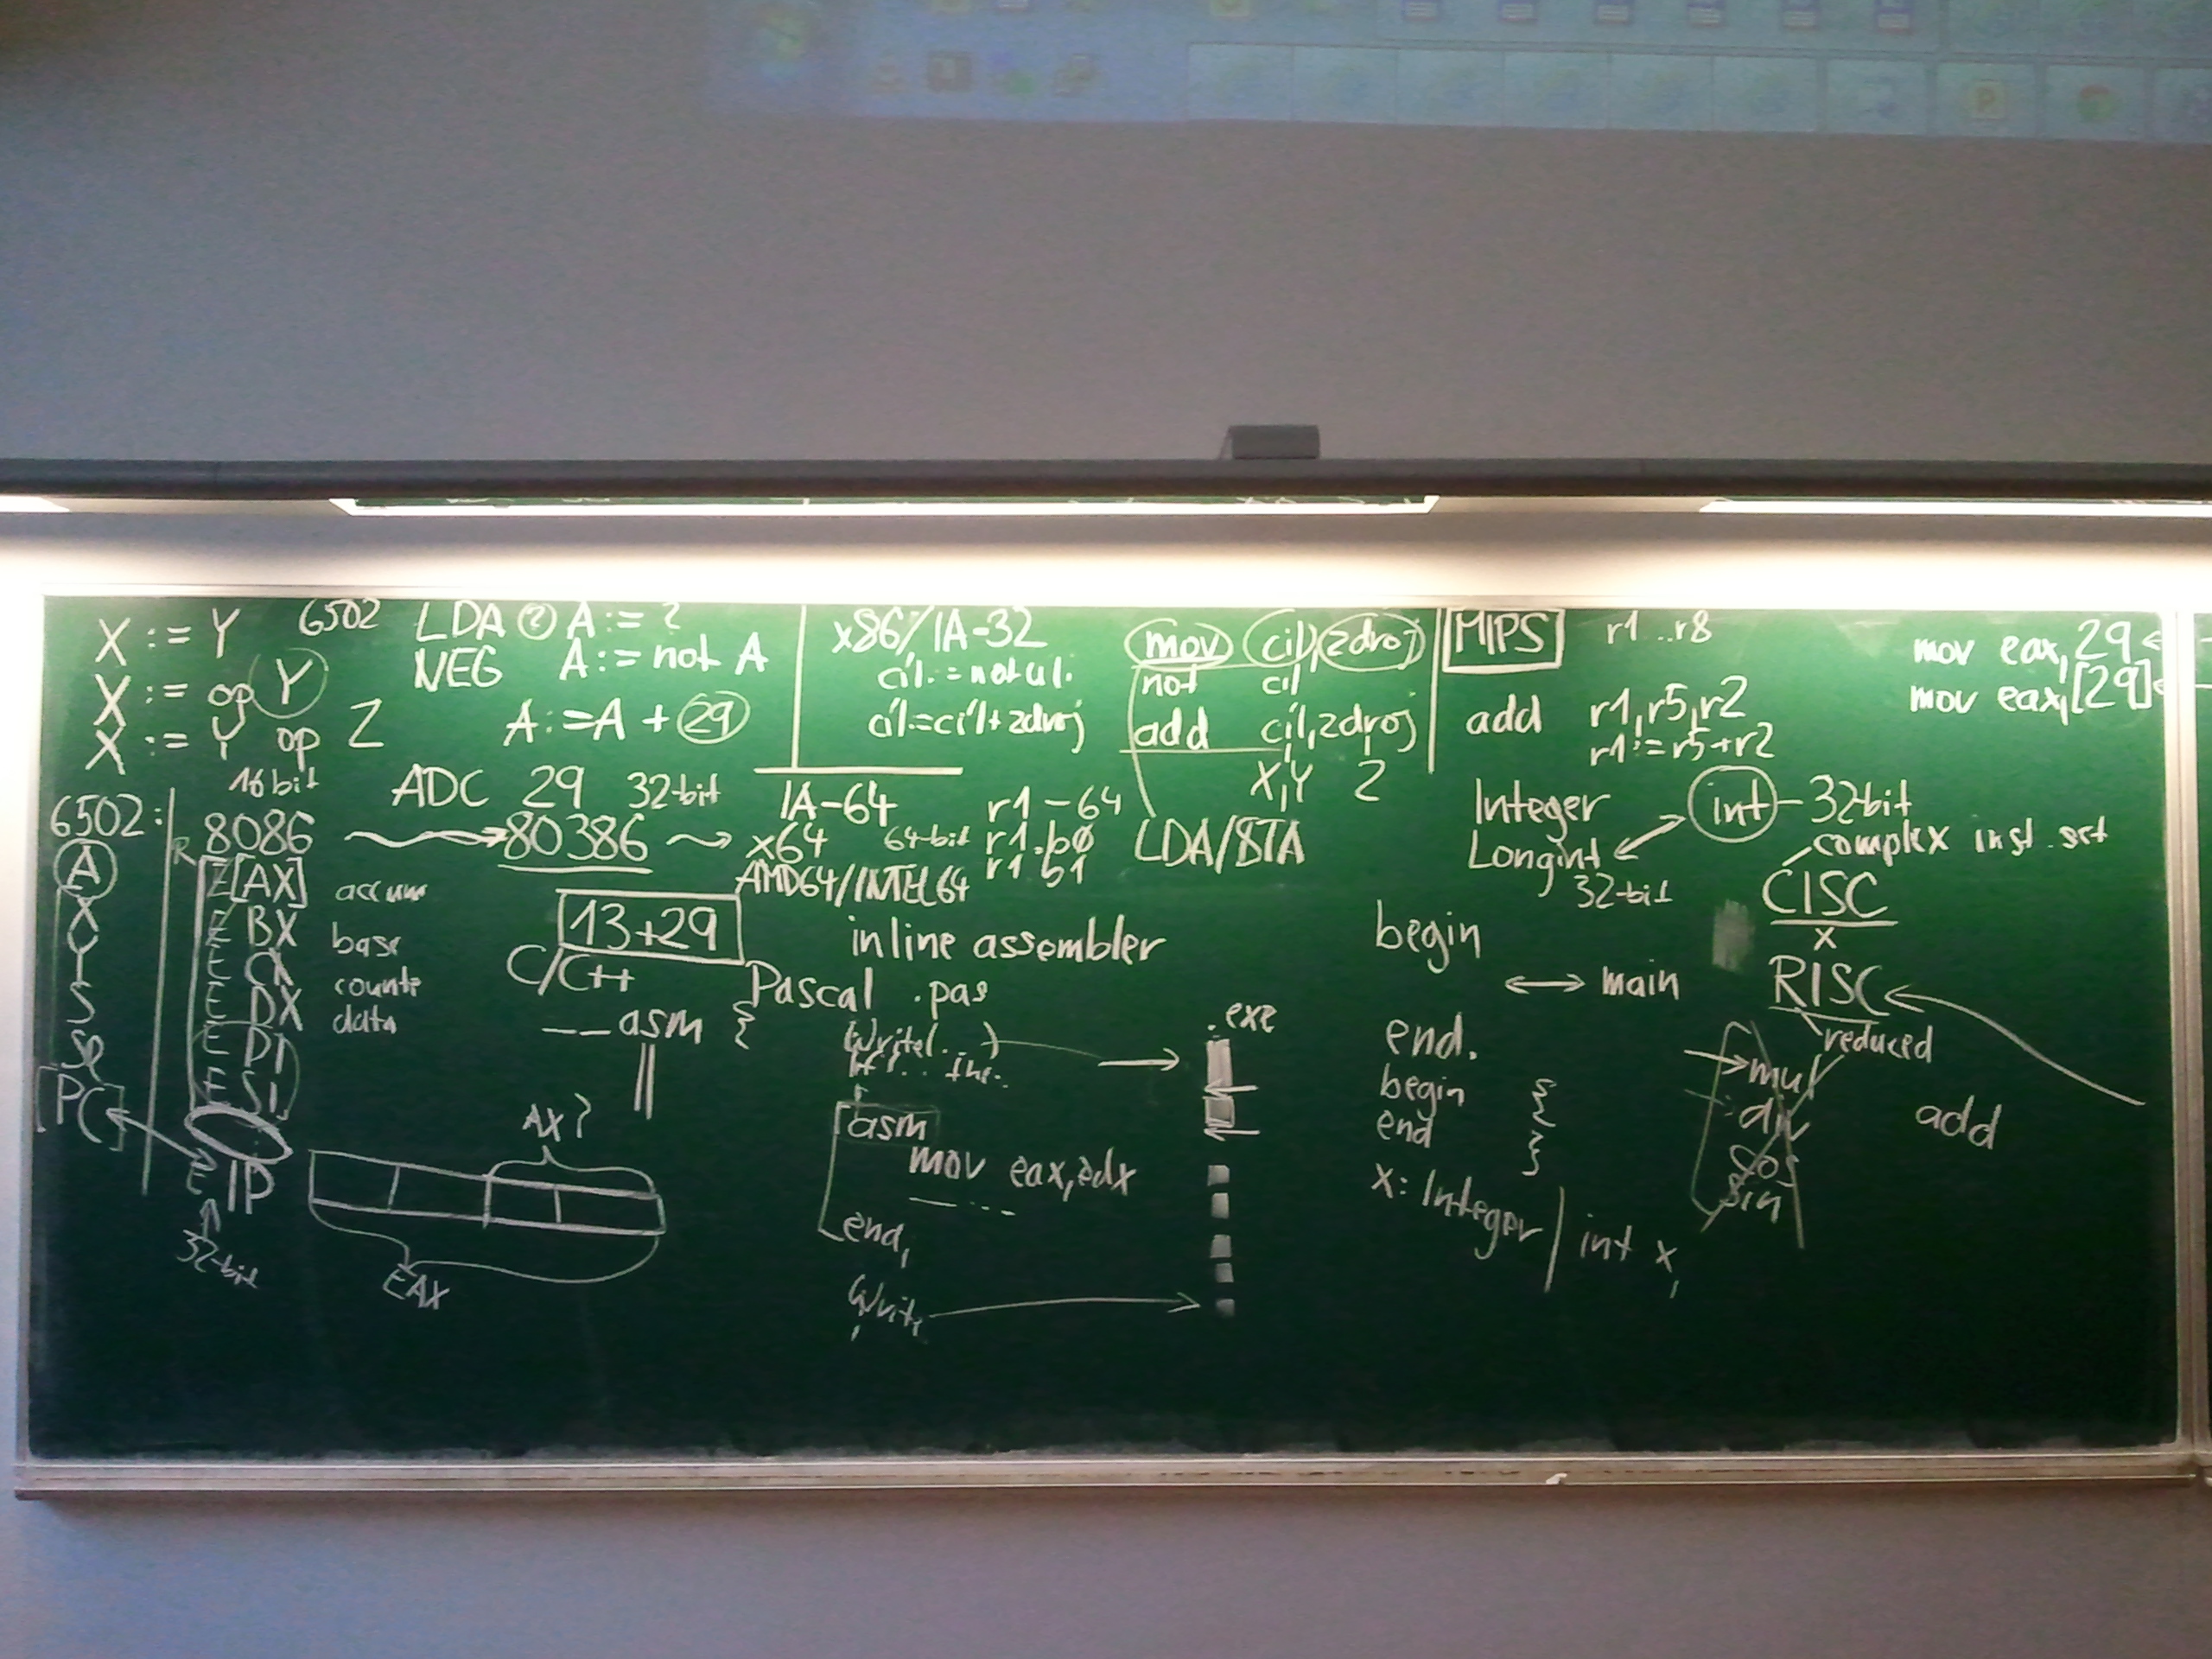 X := Y
X := op Y
X := Y op Z
6502 LDA ? A := ?
NEG A := not A
A := A + 29
ADC 29
x86/IA-32
cíl := not cíl
cíl := cíl + zdroj
mov cíl, zdroj
not cíl
add cíl, zdroj
X, Y Z
LDA/STA
MIPS r1...r8
add r1, r5, r2
r1 := r5 + r2
mov eax, 29
mov eax, [29]
6502:
A
X
Y
S
PC
16 bit
8086
R
E[AX] accum
E BX base
E CX
E DX data
E DI
E SI
E IP
32-bit
32-bit
80386
IA-64
x64 64-bit
AMD64/INTEL64
r1 - 64
r1.b0
r1.b1
13+29
C/C++
__asm {
AX?
EAX
inline assembler
Pascal .pas
Write(...)
asm
mov eax, edx
end;
Write
.exe
Integer
Longint
32-bit
int - 32-bit
complex inst. set
CISC
x
RISC
reduced
begin
main
end.
begin {
end }
x: Integer
int x;
mul
div
cos
sin
add